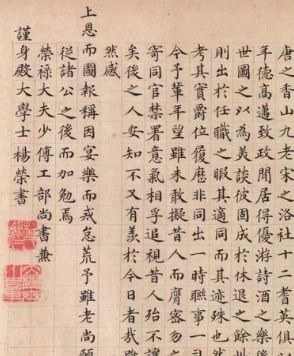 唐之香山九老宋之洛社十二耆英俱
年德高邁致政閒居得優游詩酒之樂後
世圖之以為美談彼固成於休退之餘
則出於任職之暇其適同而其跡殊也然
考其實爵位履歷非同出一時聯事一司
今予輩年望雖未敢擬昔人而膺密勿之
寄同官禁署意氣相孚追視昔人殆不讓
矣後之人安知不又有羨於今日者哉雖
然感
上恩而圖報稱因宴樂而戒怠荒予雖老尚願
從諸公之後而加勉焉
榮祿大夫少傅工部尚書兼
謹身殿大學士楊榮書